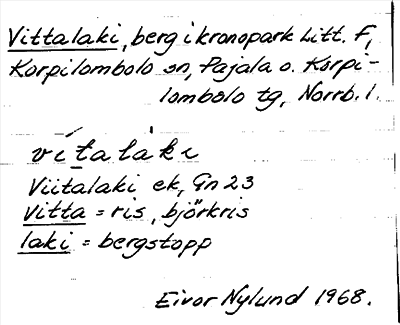 Vittalaki, berg i kronopark Litt. F,
Korpilombolo sn, Pajala o. Korpi-
lombolo tg, Norrb. l.
vítaláki
Viitalaki ek, Gn 23
vitta = ris, björkris
laki = bergstopp
Eivor Nylund 1968.